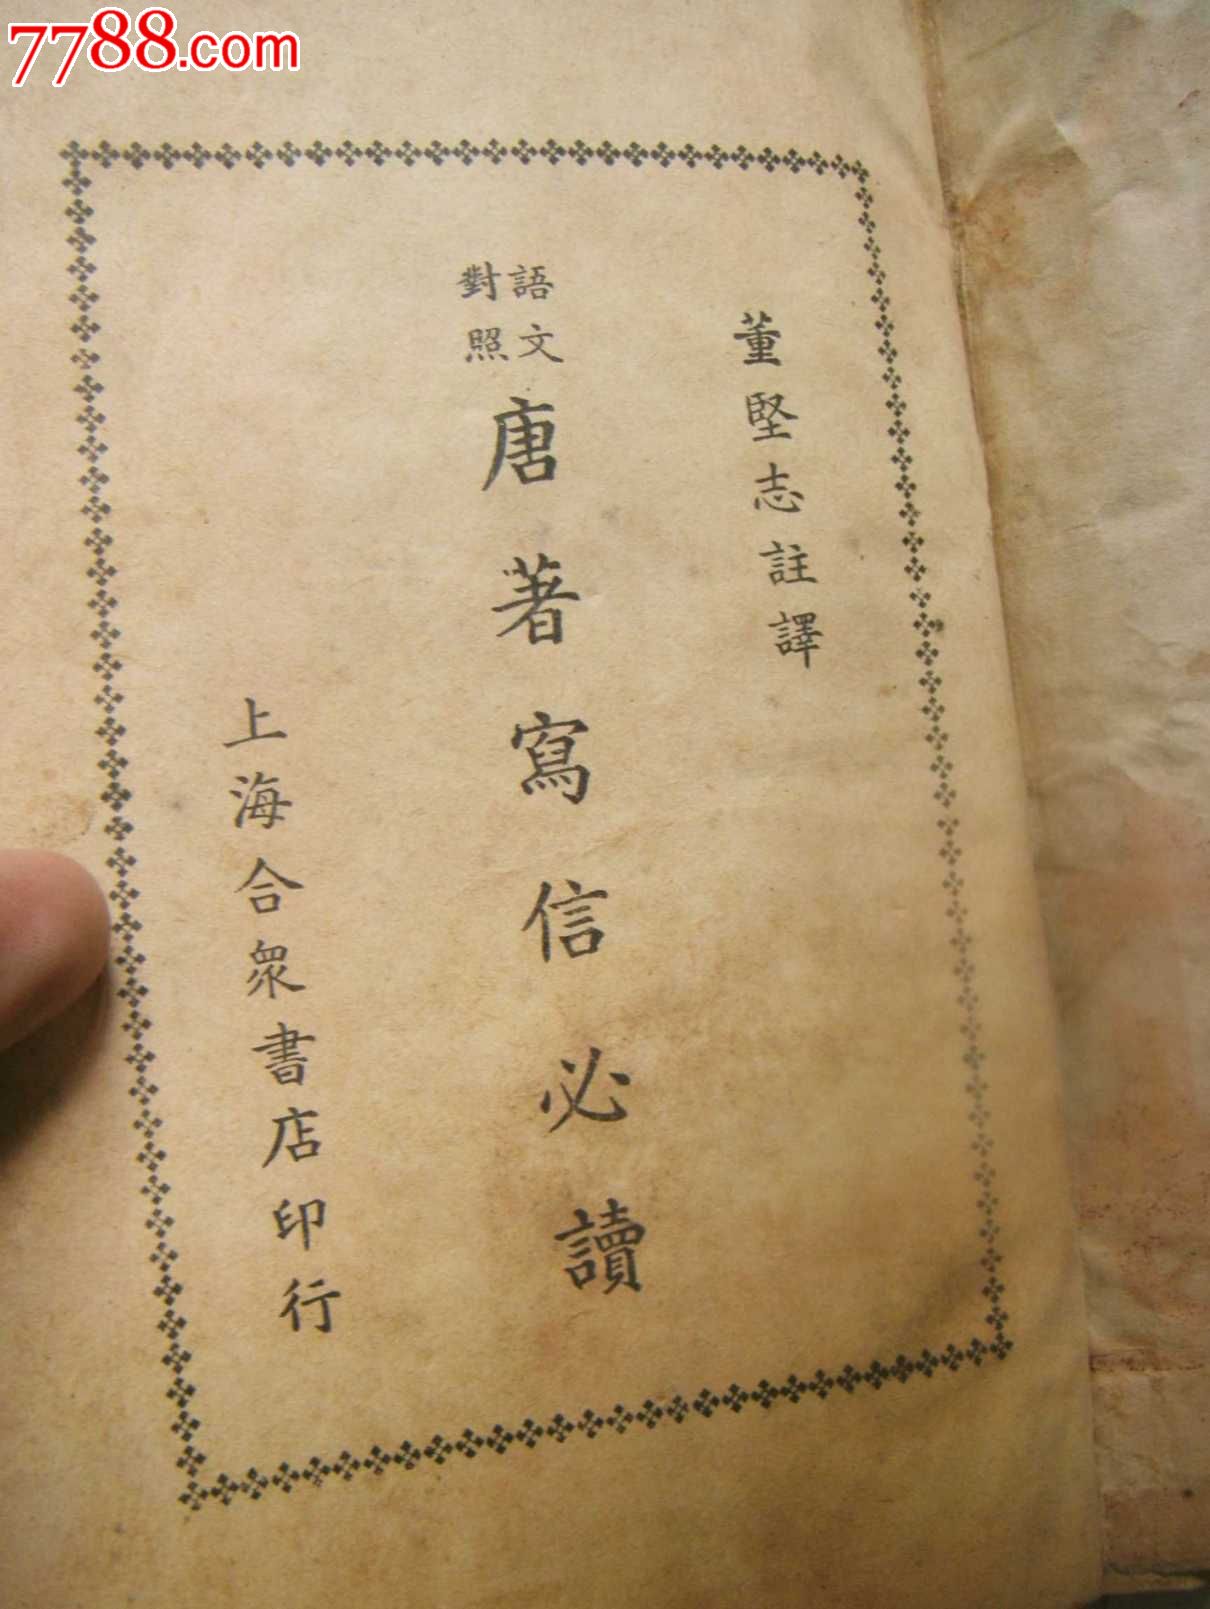 7788.com
董堅志註譯
語文
對照
唐著寫信必讀
上海合眾書店印行